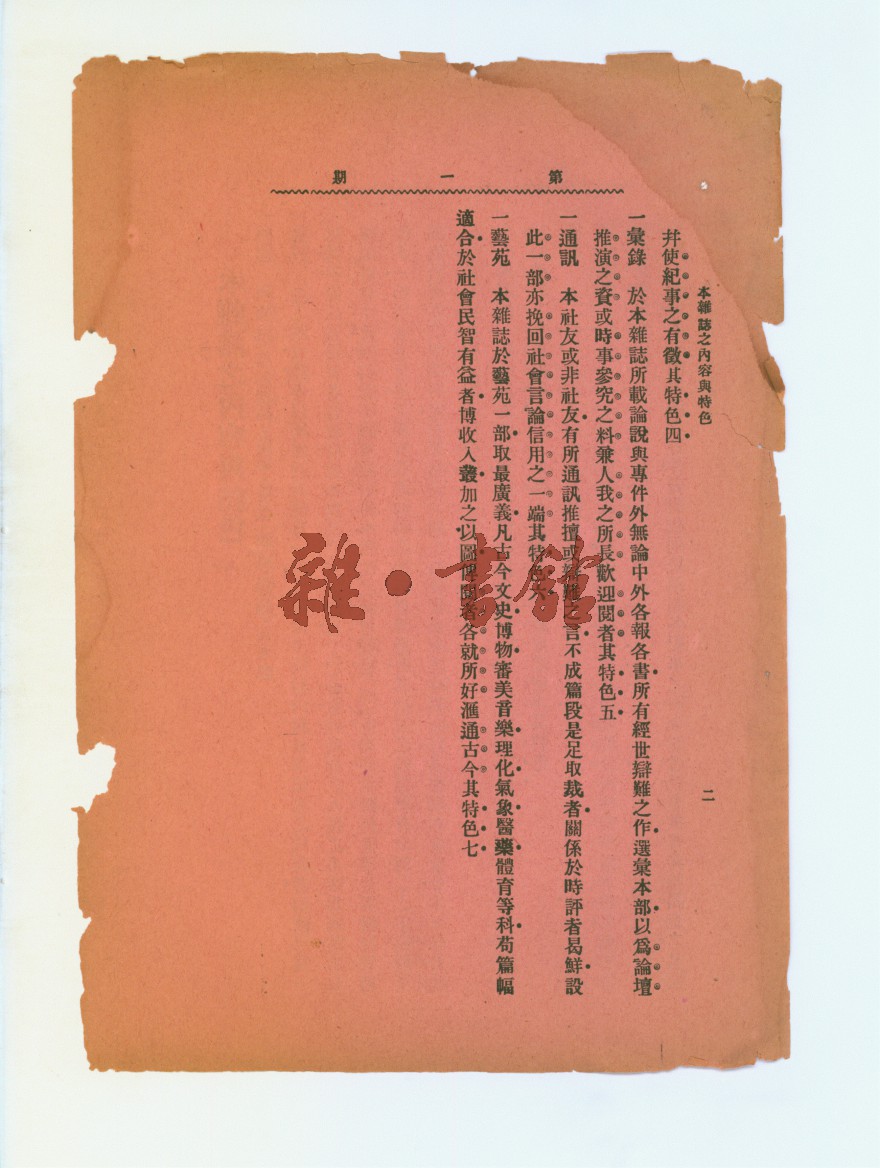 第一期
本雜誌之內容與特色
二
幷使紀事之有徵其特色四
一彙錄　於本雜誌所載論說與專件外無論中外各報各書所有經世辯難之作選彙本部以爲論壇
推演之資或時事參究之料兼人我之所長歡迎閱者其特色五
一通訊　本社友或非社友有所通訊推擅或難之言不成篇段是足取裁者關係於時評者曷鮮設
此一部亦挽回社會言論信用之一端其特色六
一藝苑　本雜誌於藝苑一部取最廣義凡古今文史博物審美音樂理化氣象醫藥體育等科苟篇幅
適合於社會民智有益者博收入叢加之以圖俾閱者各就所好滙通古今其特色七
雜·書館